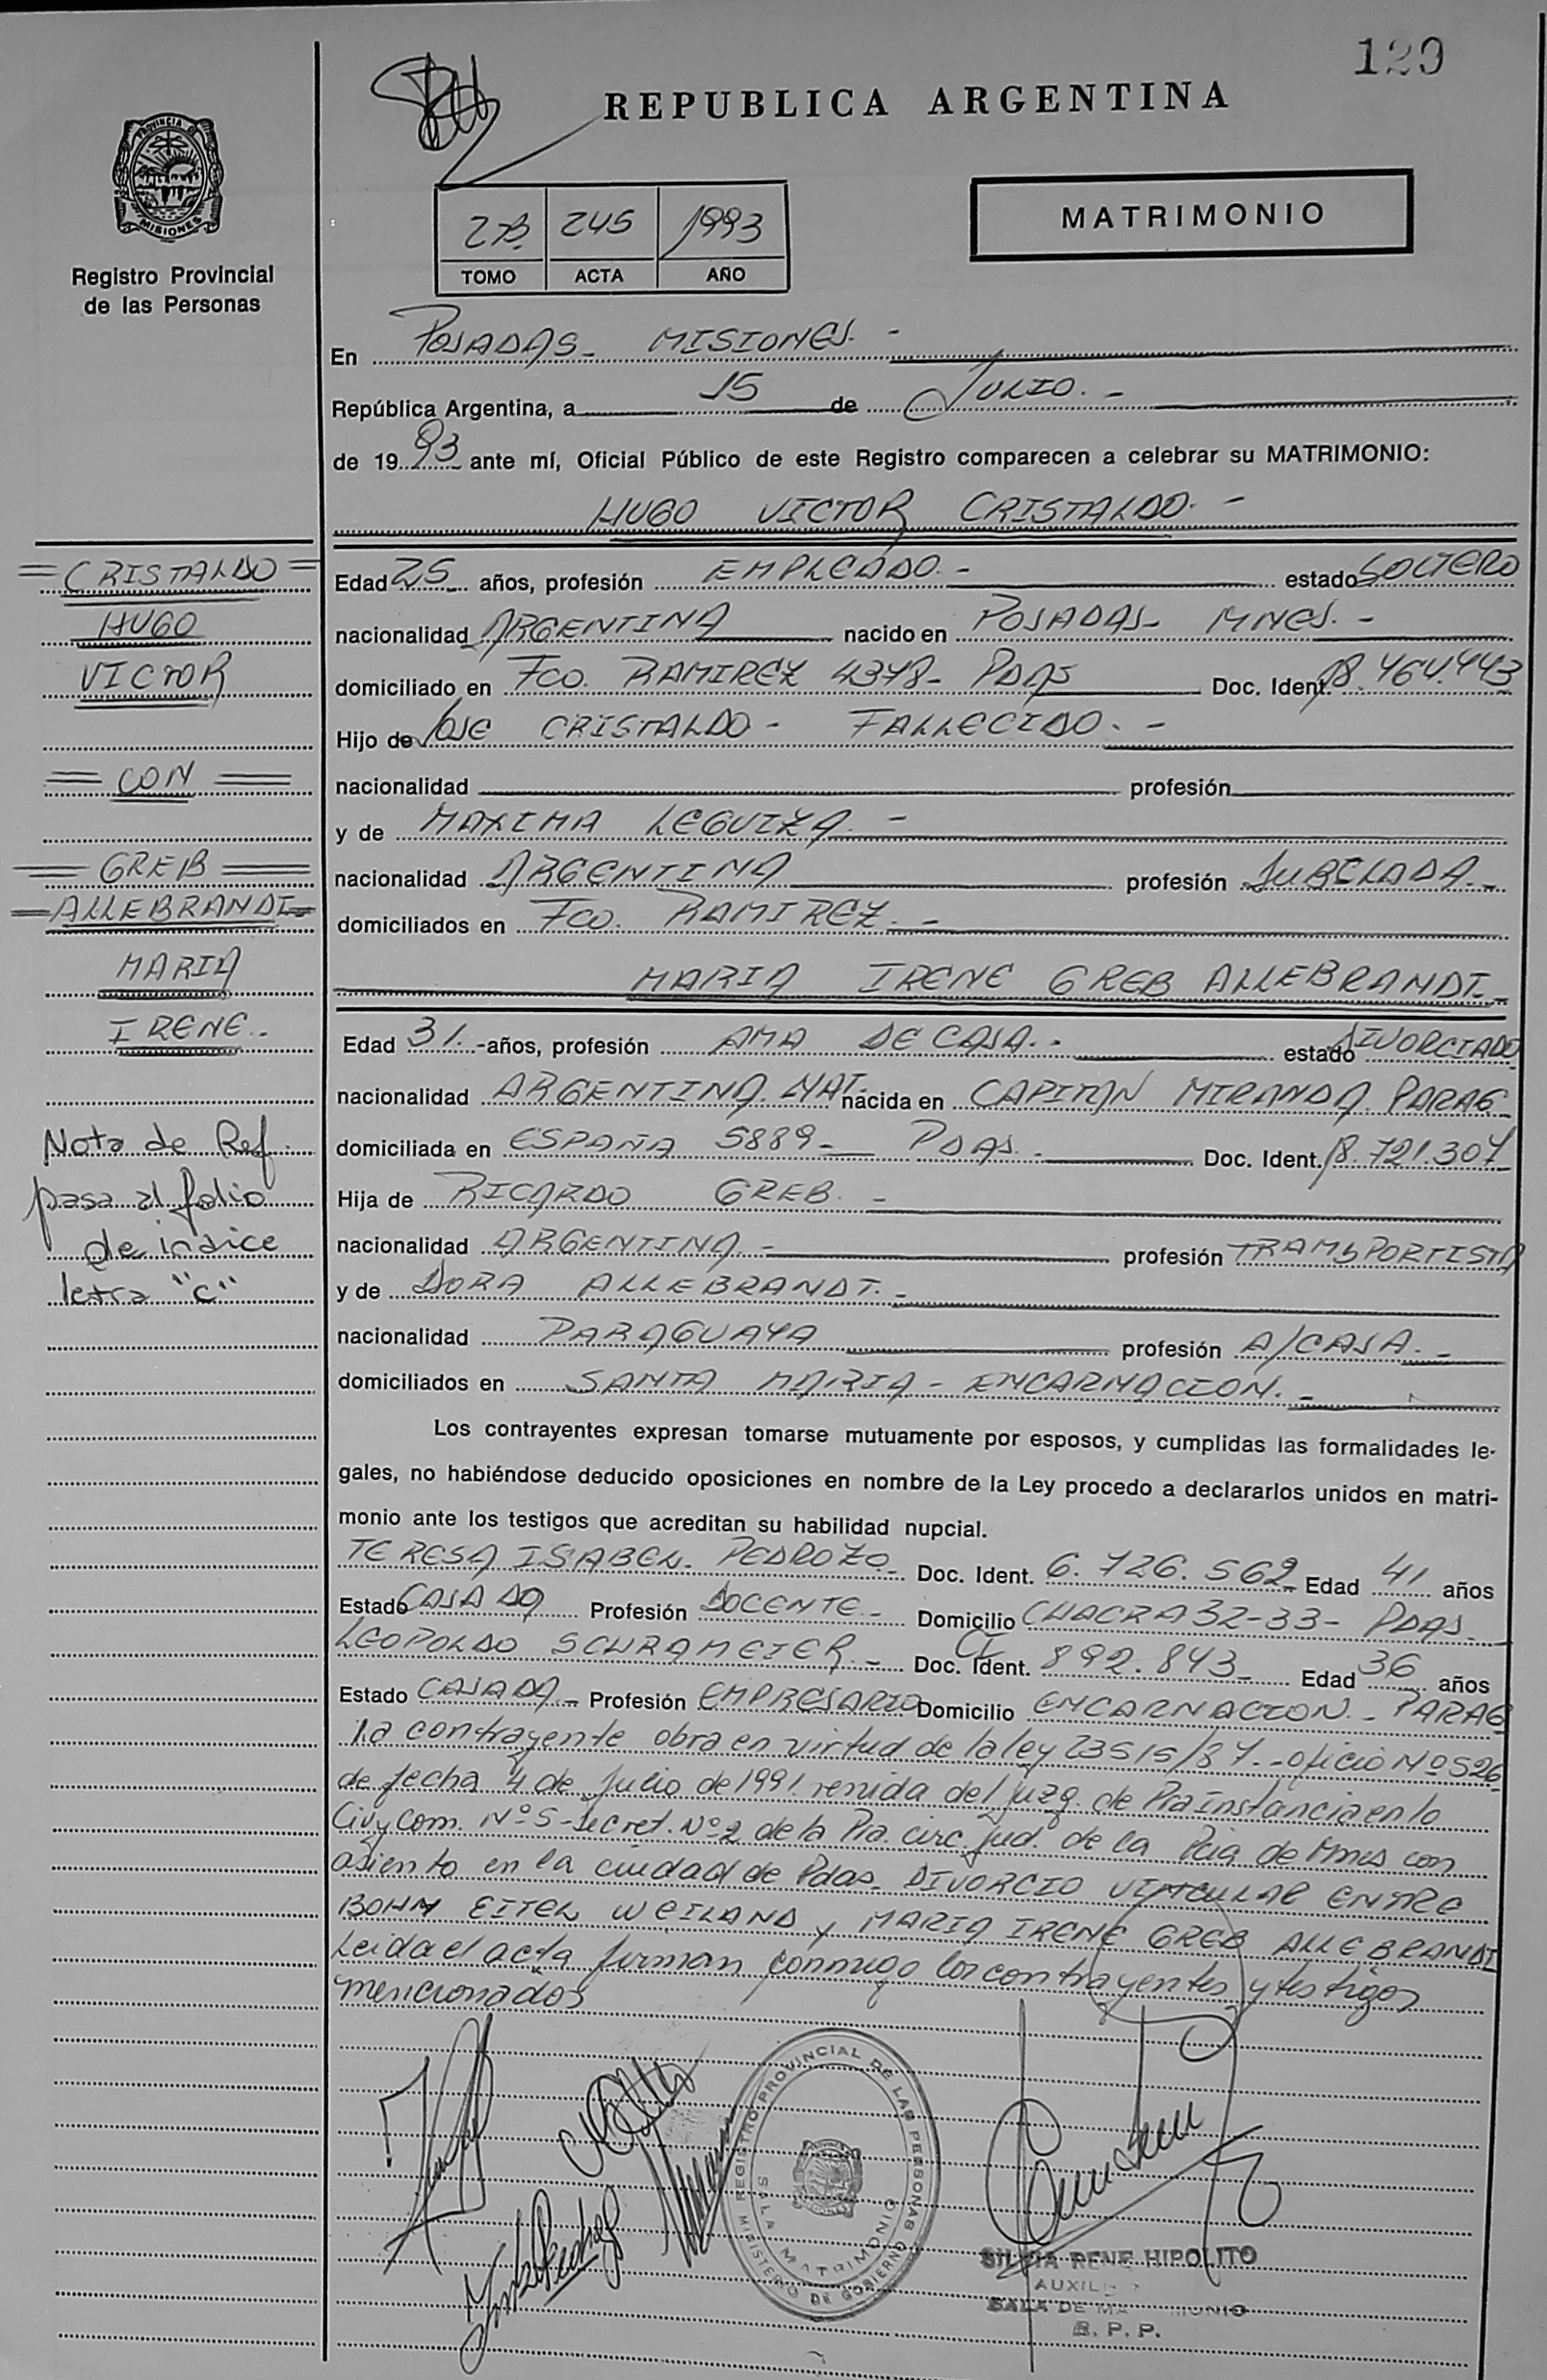 120
REPUBLICA ARGENTINA
PROVINCIA DE
MISIONES
Registro Provincial
de las Personas
245 1993
TOMO ACTA AÑO
MATRIMONIO
En POSADAS- MISIONES.-
República Argentina, a 15 de JULIO.-
de 1993 ante mí, Oficial Público de este Registro comparecen a celebrar su MATRIMONIO:
HUGO VICTOR CRISTALDO.-
=CRISTALDO=
HUGO
VICTOR
=CON=
=GREB=
=ALLEBRANDT=
MARIA
IRENE.-
Nota de Ref.
pasa al folio
de indice
letra "C"
Edad 25 años, profesión EMPLEADO.- estado SOLTERO
nacionalidad ARGENTINA nacido en POSADAS- MNES.-
domiciliado en Fco. RAMIREZ 4378- PDAS Doc. Ident. 18.464.443
Hijo de JOSE CRISTALDO- FALLECIDO.-
nacionalidad profesión
y de MAXIMA LEGUIZA.-
nacionalidad ARGENTINA profesión JUBILADA.-
domiciliados en Fco. RAMIREZ.-
MARIA IRENE GREB ALLEBRANDT.-
Edad 31.-años, profesión AMA DE CASA.- estado DIVORCIADO
nacionalidad ARGENTINA. NAT. nacida en CAPITAN MIRANDA. PARAG-
domiciliada en ESPAÑA 5889- PDAS.- Doc. Ident. 18.721.307
Hija de RICARDO GREB.-
nacionalidad ARGENTINA.- profesión TRANSPORTISTA
y de DORA ALLEBRANDT.-
nacionalidad PARAGUAYA profesión A/CASA.-
domiciliados en SANTA MARIA- ENCARNACION.-
Los contrayentes expresan tomarse mutuamente por esposos, y cumplidas las formalidades le-
gales, no habiéndose deducido oposiciones en nombre de la Ley procedo a declararlos unidos en matri-
monio ante los testigos que acreditan su habilidad nupcial.
TERESA ISABEL. PEDROZO.- Doc. Ident. 6.726.562- Edad 41 años
Estado CASADO Profesión DOCENTE- Domicilio CHACRA 32-33- PDAS-
LEOPOLDO SCHRAMEIER.- Doc. Ident. CI 892.843- Edad 36 años
Estado CASADA- Profesión EMPRESARIO Domicilio ENCARNACION- PARAG
La contrayente obra en virtud de la ley 23515/87.-oficio Nº526
de fecha 4 de Julio de 1991. renida del juzg. de Pra instancia en lo
Civ y Com. Nº5-Secret. Nº2 de la Pra. circ. jud. de la Pcia de Mnes con
asiento en la ciudad de Pdas- DIVORCIO VINCULAR ENTRE
BOHM EITEL WEILAND y MARIA IRENE GREB ALLEBRANDT
Leida el acta firman conmigo los contrayentes y testigos
mencionados
REGISTRO PROVINCIAL DE LAS PERSONAS
MINISTERIO DE GOBIERNO
SALA MATRIMONIO
SILVIA RENE HIPOLITO
SALA DE
R. P. P.